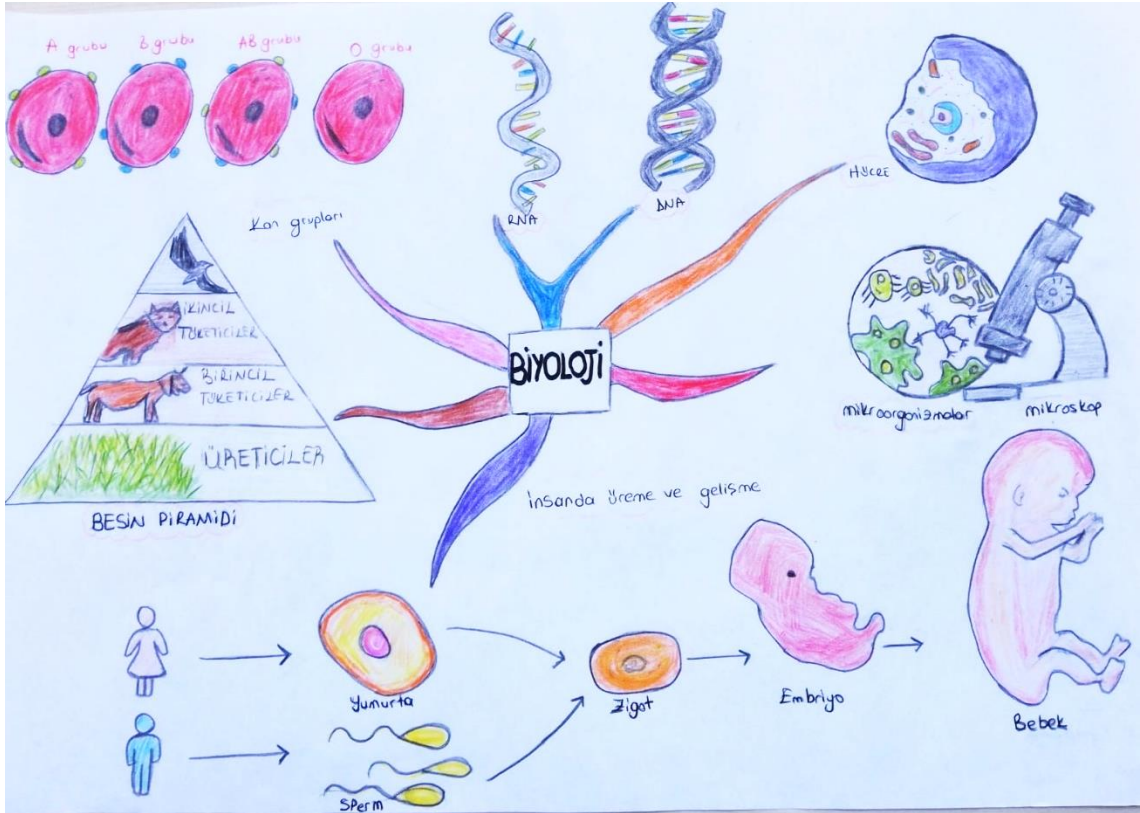 A grubu
B grubu
AB grubu
O grubu
RNA
DNA
HÜCRE
Kan grupları
İKİNCİL
TÜRETİCİLER
BİRİNCİL
TÜRETİCİLER
ÜRETİCİLER
BESİN PİRAMİDİ
BİYOLOJİ
mikroorganizmalar
mikroskop
insanda üreme ve gelişme
Yumurta
Sperm
Zigot
Embriyo
Bebek